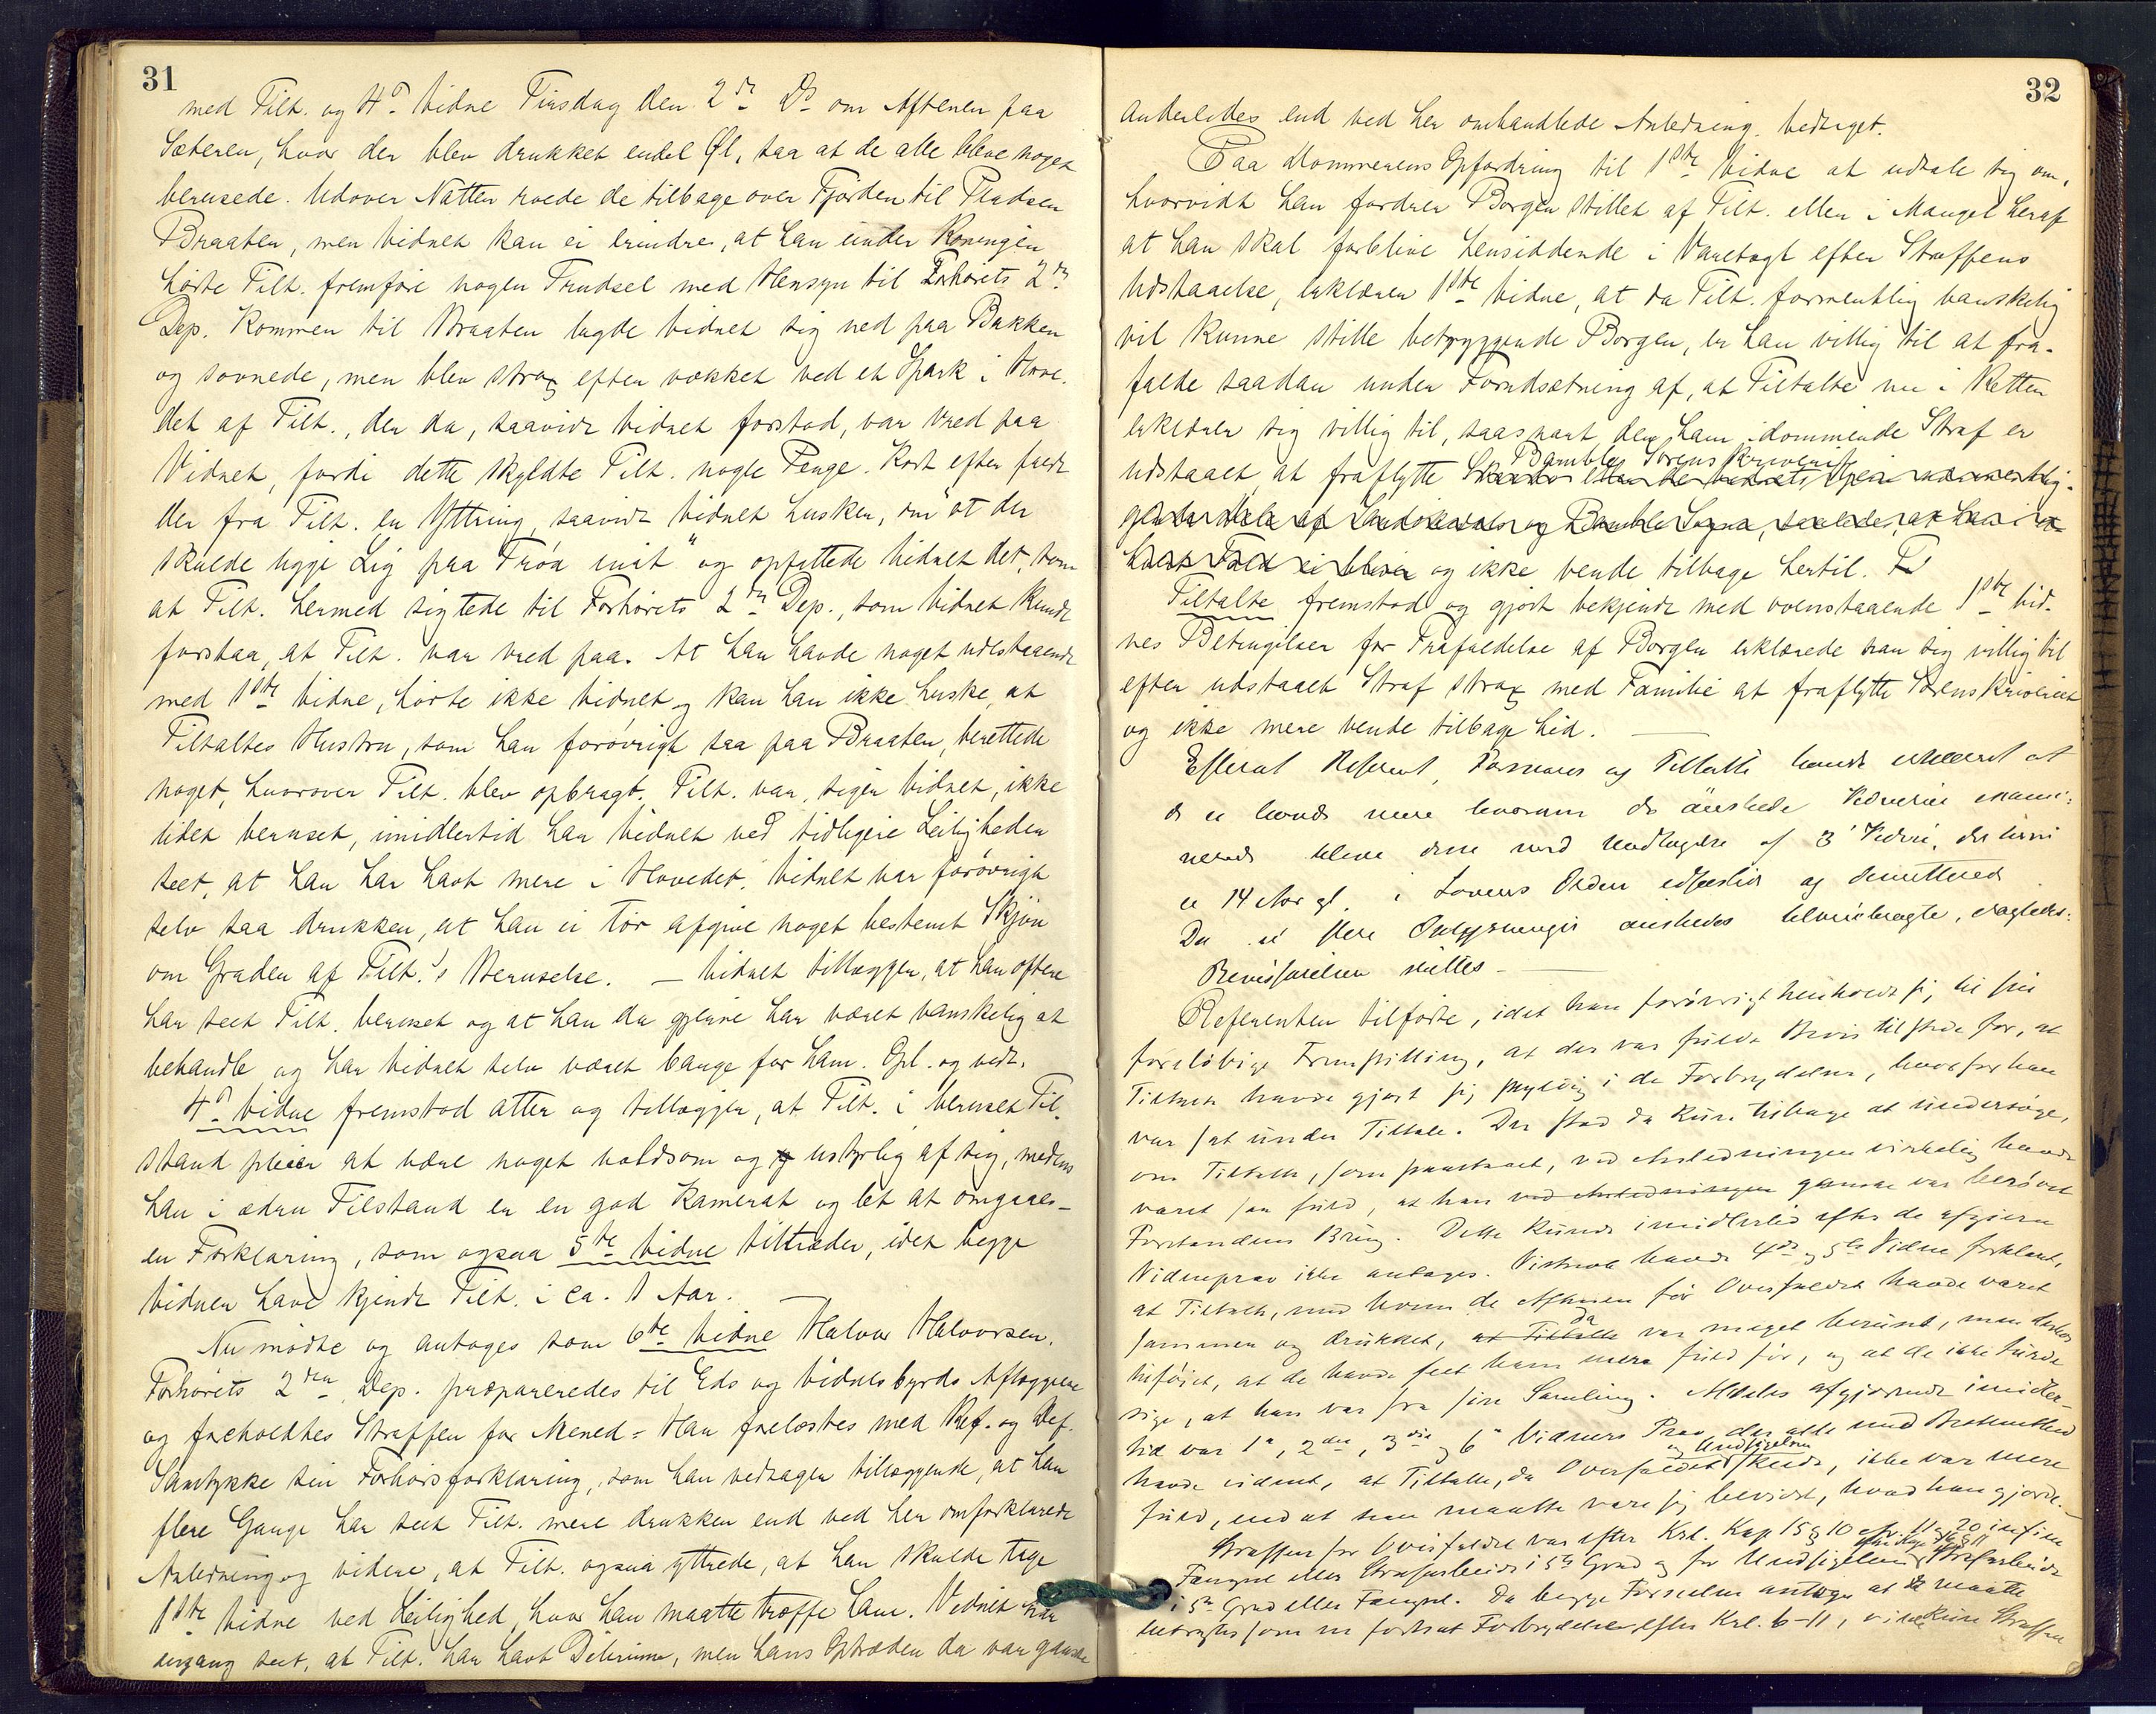 31
med Tilt. og 4de Vidne Tirsdag den 2den Ds om Aftenen paa
Sæteren, hvor der blev drukket endel Øl, saa at de alle bleve noget
berusede. Udover Natten roede de tilbage over Fjorden til Pladsen
Braaten, men Vidnet kan ei erindre, at han under Roningen
hørte Tilt. fremføre nogen Trudsel med Hensyn til Forhørets 2den
Dep. Kommen til Braaten lagde Vidnet sig ned paa Bakken
og sovnede, men blev strax efter vækket ved et Spark i Hove-
det af Tilt., der da, saavidt Vidnet forstod, var vred paa
Vidnet, fordi dette skyldte Tilt. nogle Penge. Kort efter faldt
der fra Tilt. en Yttring, saavidt Vidnet husker, om "at der
skulde ligge Lig paa Trøa inat" og opfattede Vidnet det, som
at Tilt. hermed sigtede til Forhørets 2den Dep., som Vidnet kunde
forstaa, at Tilt. var vred paa. At han havde noget udestaaende
med 1ste Vidne, hørte ikke Vidnet og kan han ikke huske, at
Tiltaltes Hustru, som han forøvrigt saa paa Braaten, berettede
noget, hvorover Tilt. blev opbragt. Tilt. var, siger Vidnet, ikke
lidet beruset, imidlertid har Vidnet ved tidligere Leiligheder
seet, at han har havt mere i Hovedet. Vidnet var forøvrigt
selv saa drukken, at han ei tør afgive noget bestemt Skjøn
om Graden af Tilt.'s Beruselse. — Vidnet tillægger, at han oftere
har seet Tilt. beruset og at han da gjerne har været vanskelig at
behandle og har Vidnet selv været bange for ham. Opl. og vedt.
4de Vidne fremstod atter og tillægger, at Tilt. i beruset Til-
stand pleier at være noget voldsom og ustyrlig af sig, medens
han i ædru Tilstand er en god Kamerat og let at omgaaes —
en Forklaring, som ogsaa 5te Vidne tiltræder, idet begge
Vidner have kjendt Tilt. i ca. 1 Aar.
Nu mødte og antoges som 6te Vidne Halvor Halvorsen,
Forhørets 2den Dep. præpareredes til Eds og Vidnesbyrds Aflæggelse
og foreholdtes Straffen for Mened. Han forelæstes med Ref. og Def.
Samtykke sin Forhørsforklaring, som han vedtager tillæggende, at han
flere Gange har seet Tilt. mere drukken end ved her omforklarede
Anledning og videre, at Tilt. ogsaa yttrede, at han skulde tage
1ste Vidne ved Leilighed, hvor han maatte træffe ham. Vidnet har
engang seet, at Tilt. har havt Delirium, men hans Optræden da var ganske
32
anderledes end ved her omhandlede Anledning. Vedtaget.
Paa Dommerens Opfordring til 1ste Vidne at udtale sig om,
hvorvidt han fordrer Borgen stillet af Tilt. eller i Mangel heraf
at han skal forblive hensiddende i Varetægt efter Straffens
Udstaaelse, erklærer 1ste Vidne, at da Tilt. formentlig vanskelig
vil kunne stille betryggende Borgen, er han villig til at fra-
falde saadan under Forudsætning af, at Tiltalte nu i Retten
erklærer sig villig til, saasnart den ham idømmende Straf er
Bamble Sorenskriveri
udstaaet, at fraflytte
og ikke vende tilbage hertil.
Tiltalte fremstod og gjort bekjendt med ovenstaaende 1ste Vid-
nes Betingelser for Frafaldelse af Borgen erklærede han sig villig til
efter udstaaet Straf strax med Familie at fraflytte Sorenskriveriet
og ikke mere vende tilbage hid.
Efterat Referent, Forsvarer og Tiltalte havde erklæret at
de ei havde mere hvorom de ønskede Vidnerne exami-
nerede bleve disse med Undtagelse af 3die Vidne, der kun
er 14 Aar gl. i Lovens Orden edfæstede og demitterede
Da ei flere Oplysninger ønskedes tilveiebragte, erklæredes
Bevisførelsen sluttet —
Referenten tilførte, idet han forøvrigt henholdt sig til sin
foreløbige Fremstilling, at der var fuldt Bevis tilstede for, at
Tiltalte havde gjort sig skyldig i de Forbrydelser, hvorfor han
var sat under Tiltale. Der stod da kun tilbage at undersøge,
om Tiltalte, som paastaaet, ved Anledningen virkelig havde
været saa fuld, at han ved Anledningen ganske var berøvet
Forstandens Brug. Dette kunde imidlertid efter de afgivne
Vidneprov ikke antages. Vistnok havde 4de og 5te Vidne forklaret,
at Tiltalte, med hvem de Aftenen før Overfaldet havde været
sammen og drukket, at Tiltalte da var meget beruset, men derhos
tilføiet, at de havde seet ham mere fuld før, og at de ikke turde
sige, at han var fra sin Samling. Aldeles afgjørende imidler-
tid var 1ste, 2den, 3die og 6te Vidners Prov, der alle med Bestemthed
og Undsigelsen
havde vidnet, at Tiltalte, da Overfaldet skede, ikke var mere
fuld, end at han maatte være sig bevidst, hvad han gjorde.
Straffen for Overfaldet var efter Krl. Kap 15 § 10 cfr. 11 og 20 in fine
Fængsel eller Strafarbeide i 5te Grad og for Undsigelsen Strafarbeide
i 5te Grad eller Fængsel. Da begge Forseelser antages at maatte
betragtes som en fortsat Forbrydelse, efter Krl. 6-11, vil kun Straffen